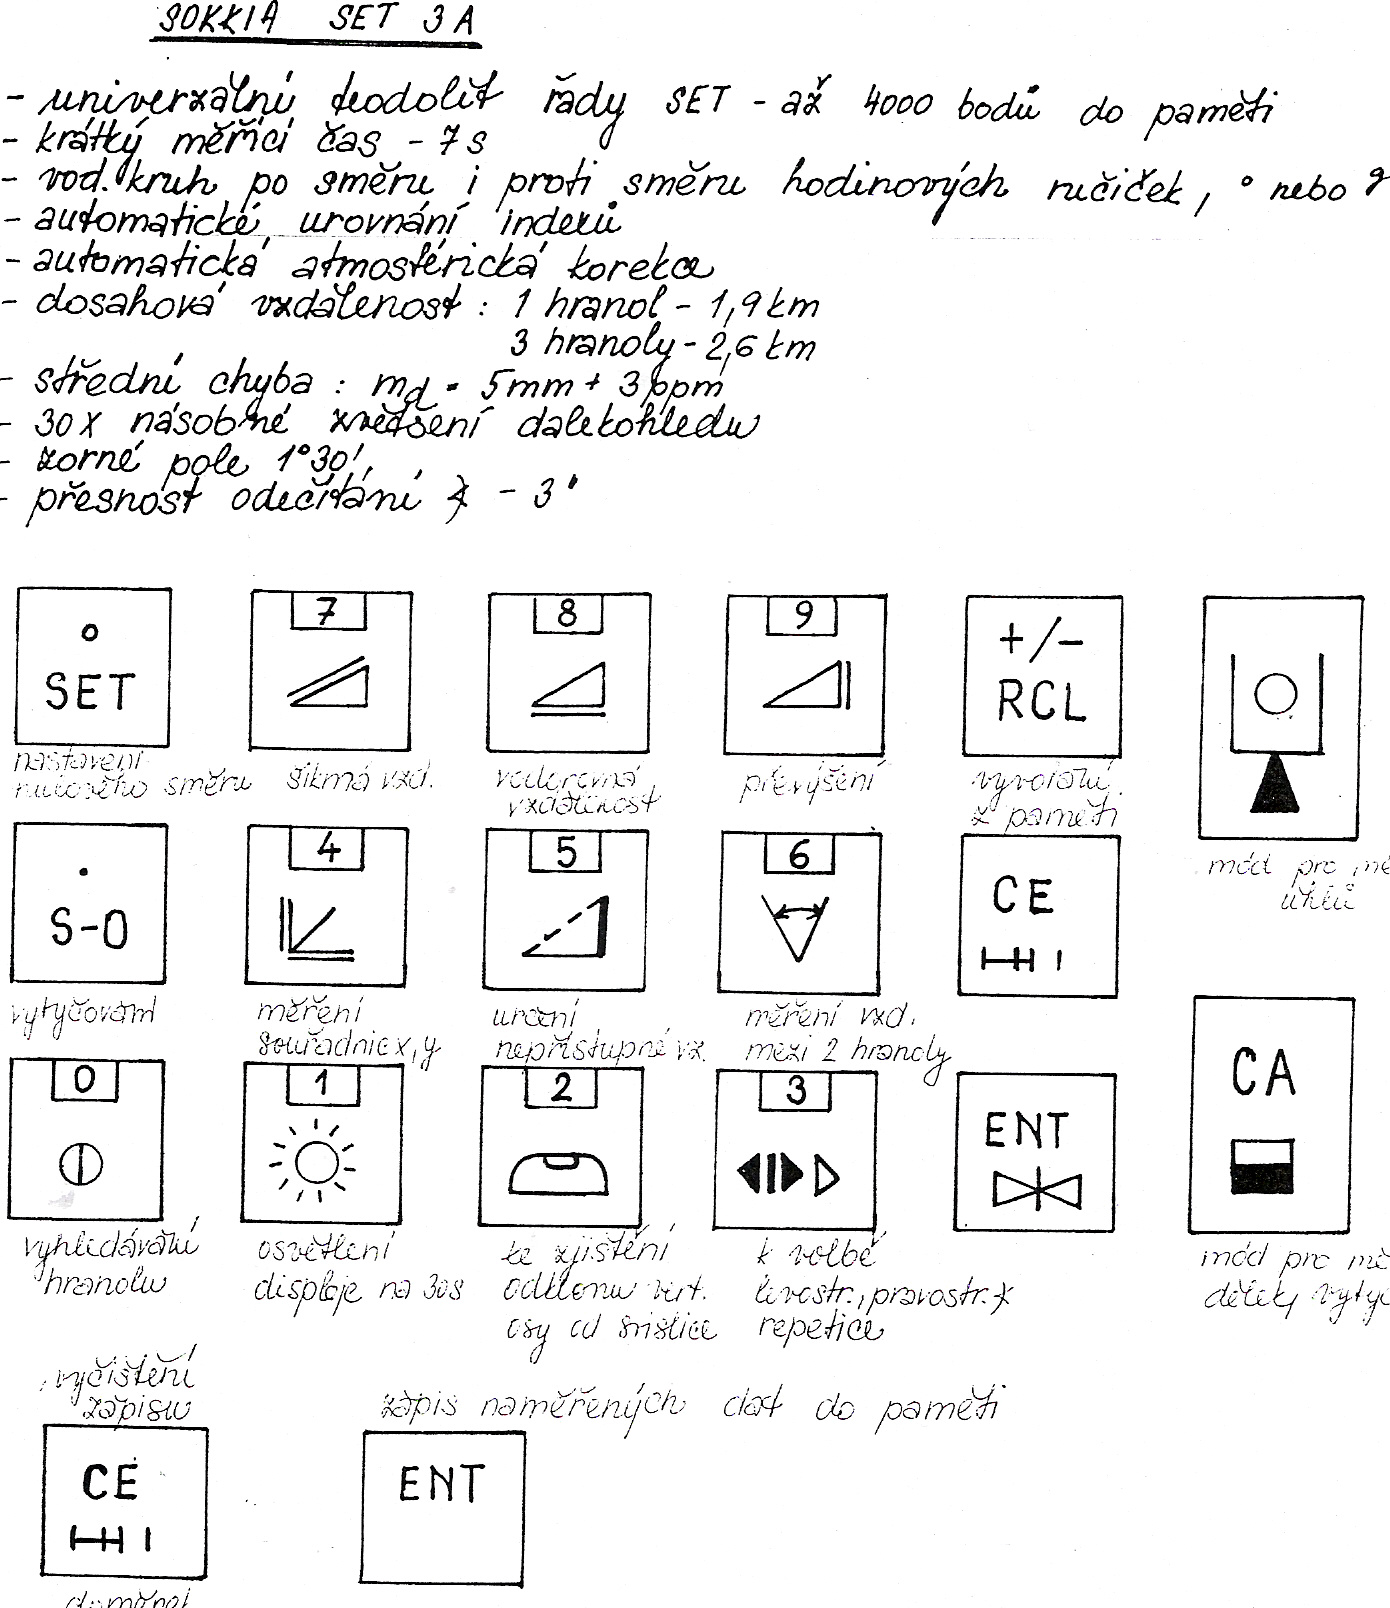 SOKKIA SET 3A
- univerzální teodolit řady SET - až 4000 bodů do paměti
- krátký měřící čas - 7s
- vod. kruh po směru i proti směru hodinových ručiček, ° nebo g
- automatické urovnání indexů
- automatická atmosférická korekce
- dosahová vzdálenost : 1 hranol - 1,9 km
3 hranoly - 2,6 km
- střední chyba : md = 5mm + 3ppm
- 30x násobné zvětšení dalekohledu
- zorné pole 1°30'
- přesnost odečítání ∢ - 3"
0 SET
7
8
9
+/- RCL
nastavení nulového směru
šikmá vzd.
vodorovná vzdálenost
převýšení
vyvolání z paměti
mód pro mě
úhlů
S-O
4
5
6
CE
vytyčování
měření souřadnic x, y
určení nepřístupné vz.
měření vzd. mezi 2 hranoly
0
1
2
3
ENT
CA
vyhledávání hranolu
osvětlení displeje na 30s
ke zjištění odklonu vert. osy od svislice
k volbě levostr., pravostr. ∢ repetice
mód pro mě
délek, vytyč
vyčištění zápisu
zápis naměřených dat do paměti
CE
ENT